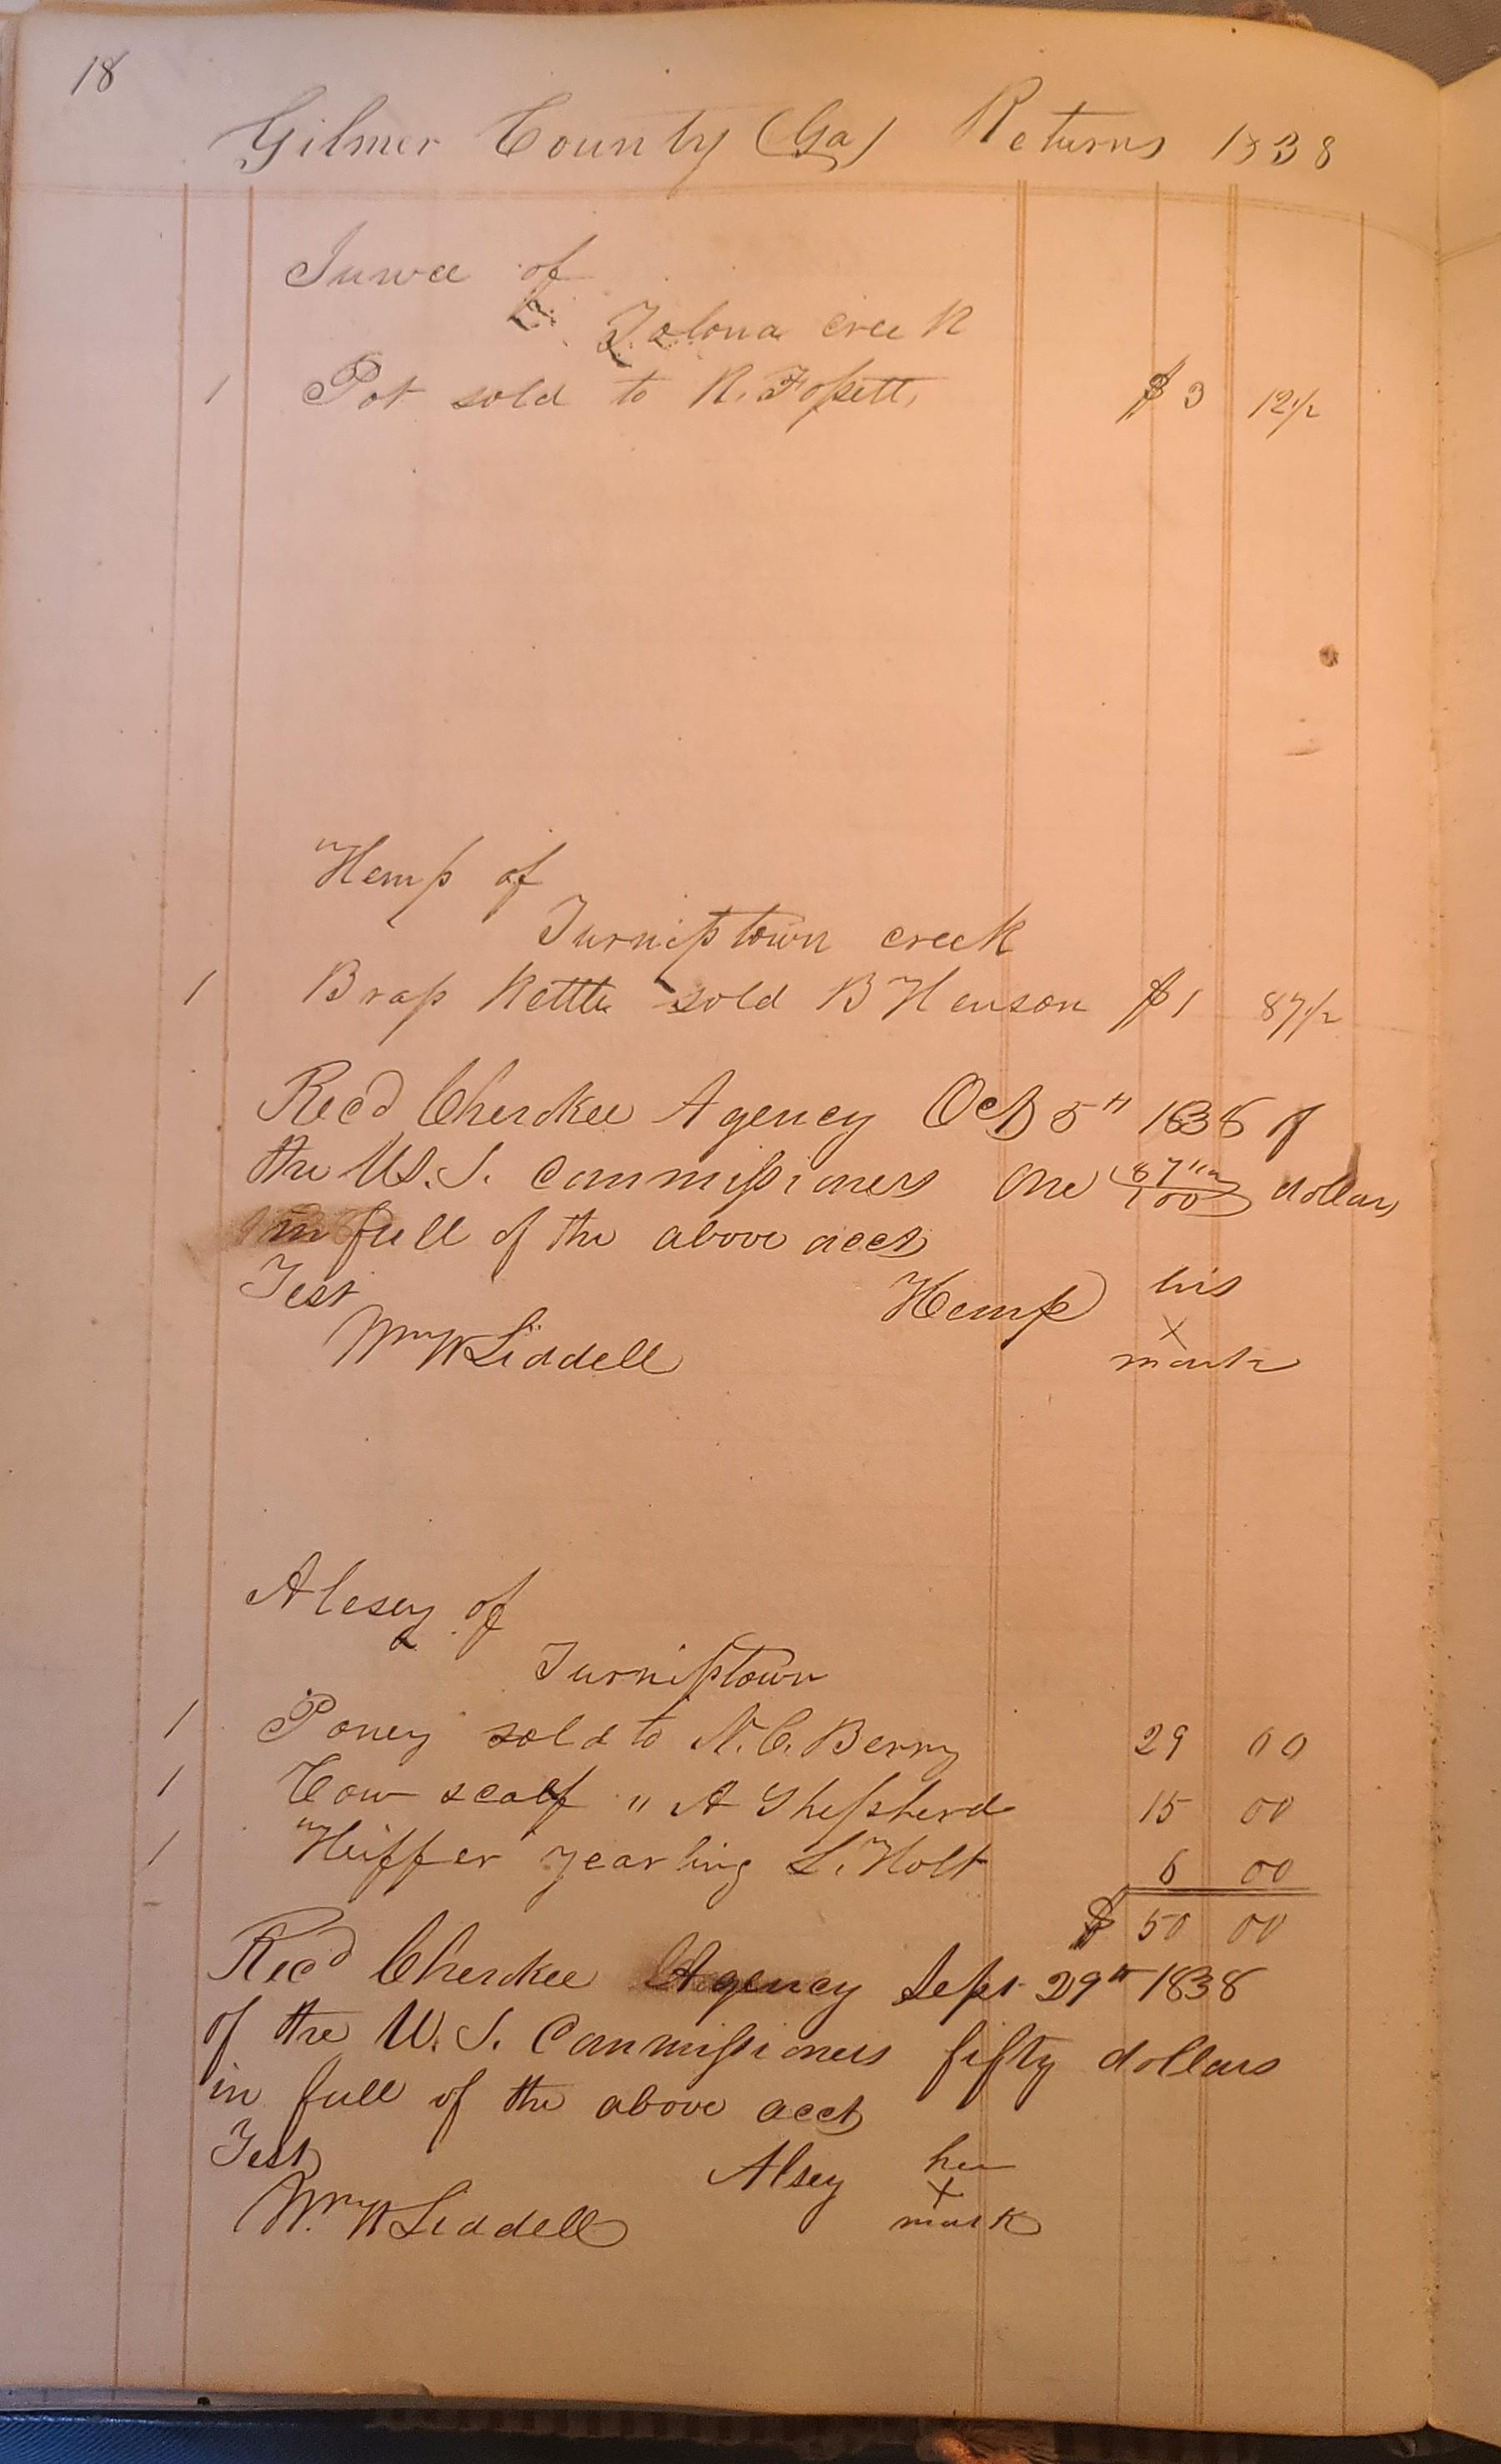 18
Gilmer County (Ga) Returns 1838
Juwee of
Talona creek
1 Pot sold to R. Fossett $3 12 1/2
Hemp of
Turniptown creek
1 Brass Kettle sold B Henson $1 87 1/2
Recd Cherokee Agency Oct 5th 1838 of
the U.S. commissioners one 87 1/2/100 dollars
in full of the above acct
Test Hemp his
Wm W Liddell x
mark
Alesey of
Turniptown
1 Poney sold to N. C. Berry 29 00
1 Cow & calf " A Shepherd 15 00
1 Heiffer yearling L. Holt 6 00
$ 50 00
Recd Cherokee Agency Sept 29th 1838
of the U. S. Commissioners fifty dollars
in full of the above acct
Test Alsey her
Wm W Liddell x
mark